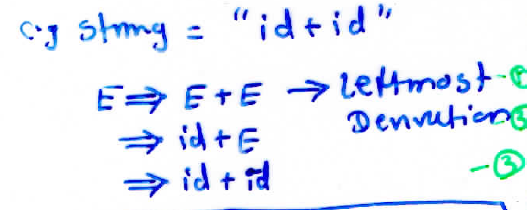 e.g string = "id+id"
E ⇒ E + E → Leftmost - ①
⇒ id + E Derivation ②
⇒ id + id - ③